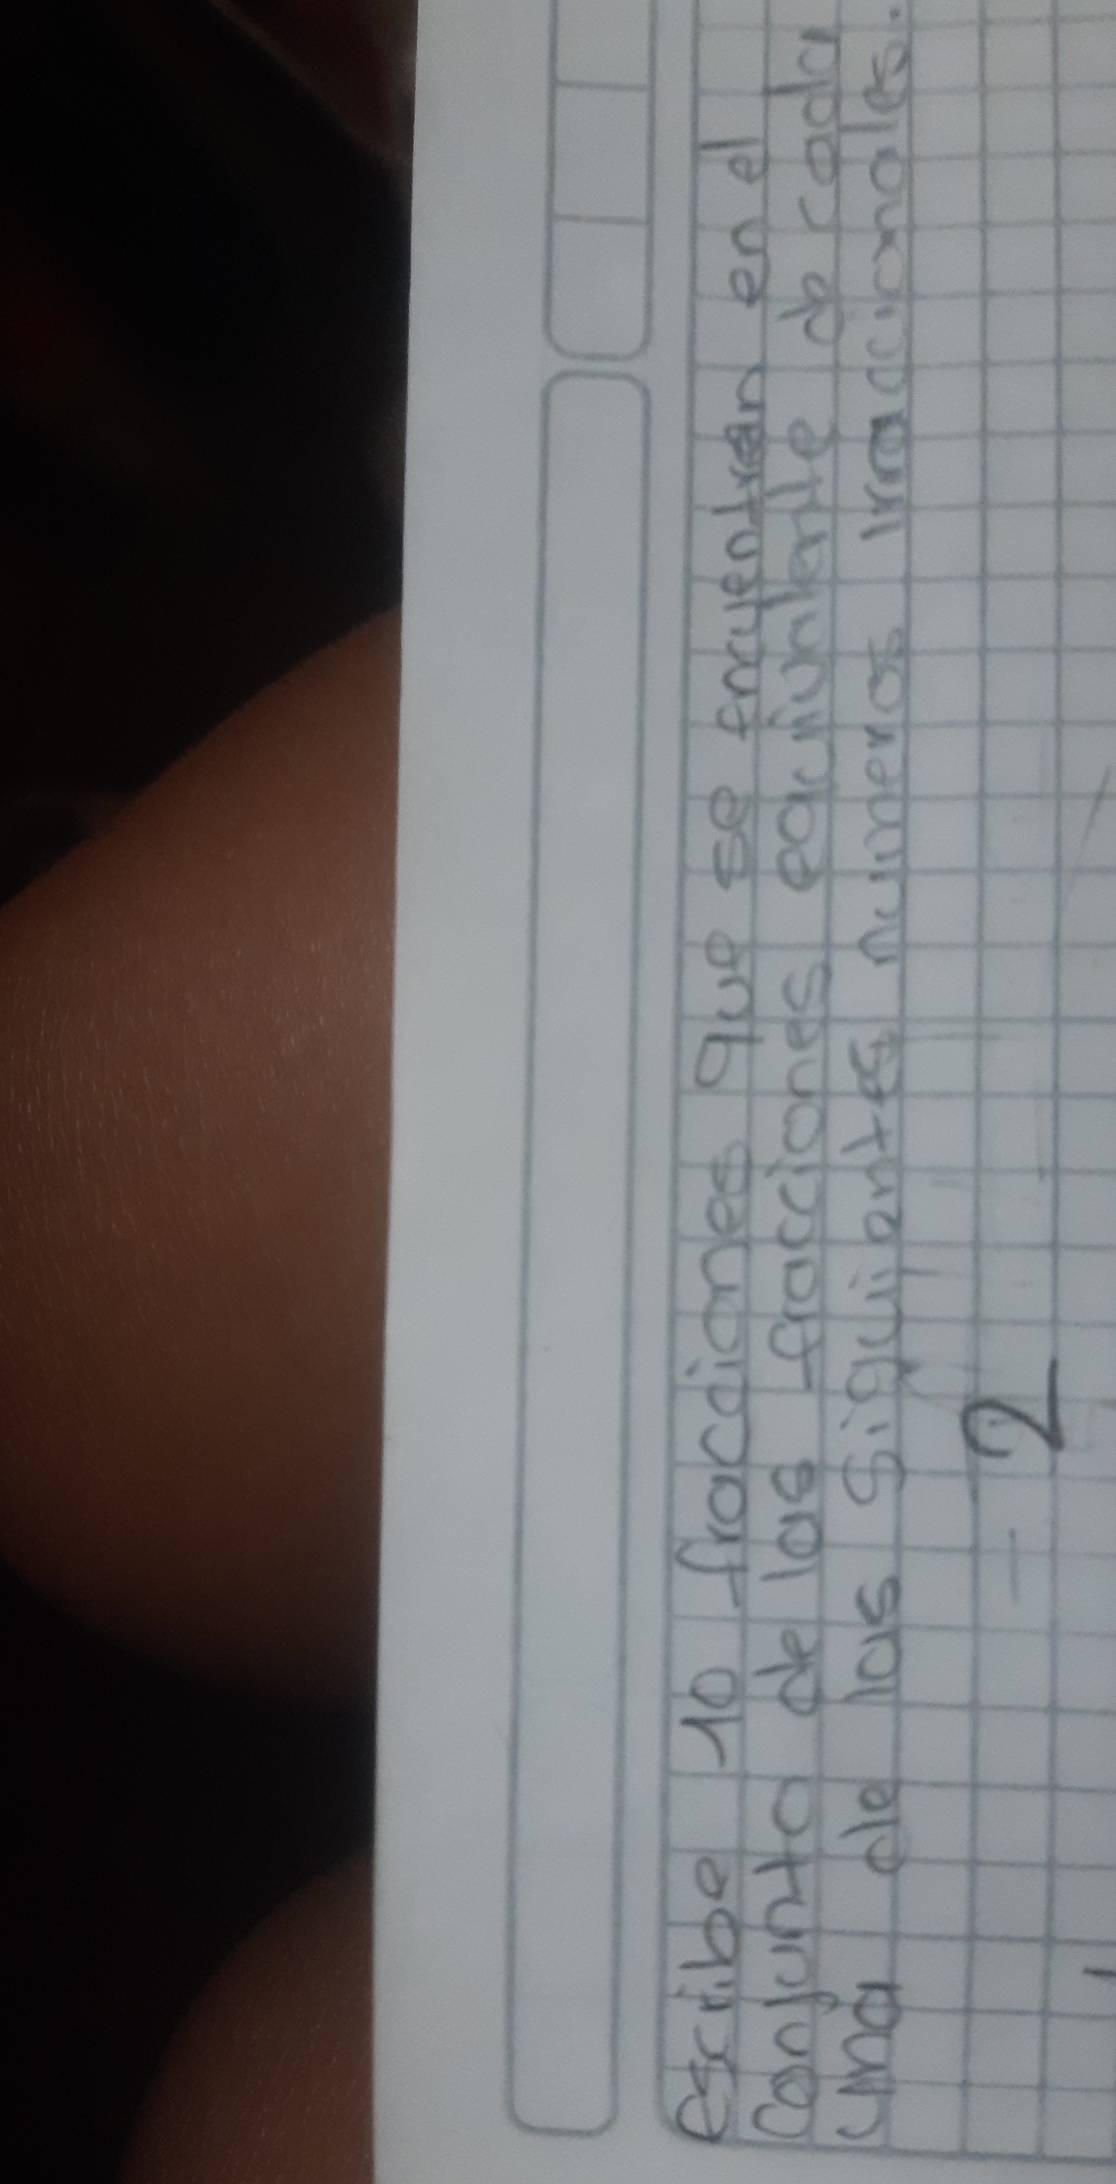 escribe 10 fracciones que se encuentran en el
conjunto de las fracciones equivalente de cada
una de las siguientes numeros irracionales.
2